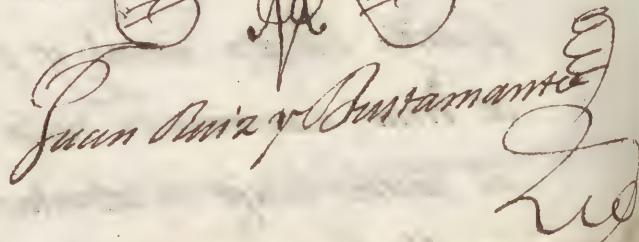 Juan Ruiz y Bustamante